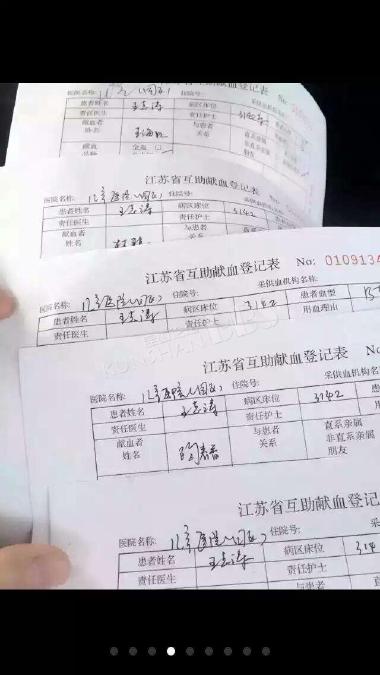 医院名称: 儿童医院(园区) 住院号:
江苏省互助献血登记表 No:
患者姓名 王志涛 病区床位 3142
责任医生 责任护士
献血者
姓名 与患者
关系 直系亲属
非直系亲属
朋友
献血 全血
江苏省互助献血登记表 No:
医院名称: 儿童医院(园区) 住院号:
患者姓名 王志涛 病区床位 3142
责任医生 责任护士
献血者
姓名 与患者
关系 直系亲属
江苏省互助献血登记表 No: 0109134
医院名称: 儿童医院(园区) 住院号: 采供血机构名称:
患者姓名 王志涛 病区床位 3142 患者血型 B
责任医生 责任护士 用血理由
KUNSHAN
江苏省互助献血登记表 No
医院名称: 儿童医院(园区) 住院号: 采供血机构名
患者姓名 王志涛 病区床位 3142 患
责任医生 责任护士
献血者
姓名 与患者
关系 直系亲属
非直系亲属
朋友
江苏省互助献血登记
医院名称: 儿童医院(园区) 住院号:
患者姓名 王志涛 病区床位 314
责任医生 责任护士
与患者 直